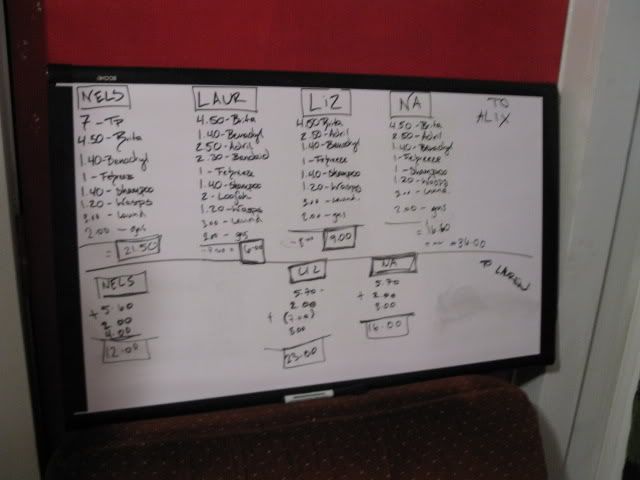 NELS
7 - TP
4.50 - Brita
1.40 - Benadryl
1 - Febreeze
1.40 - Shampoo
1.20 - Wasps
3.00 - Laund
2.00 - gas
= 21.50
LAUR
4.50 - Brita
1.40 - Benadryl
2.50 - Advil
2.30 - Bandaid
1 - Febreeze
1.40 - Shampoo
2 - Loofah
1.20 - Wasps
3.00 - Laund
2.00 - gas
6.00
LIZ
4.50 Brita
2.50 - Advil
1.40 - Benadryl
1 - Febreeze
1.40 - Shampoo
1.20 - Wasps
3.00 - Laund
2.00 - gas
9.00
NA
4.50 - Brita
2.50 - Advil
1.40 - Benadryl
1 - Febreeze
1 - Shampoo
1.20 - Wasps
3.00 - Laund
2.00 - gas
= 16.60
TO
ALIX
NELS
5.60
+ 2.00
4.00
12.00
LIZ
5.70
2.00
+ (7.00)
3.00
23.00
NA
5.70
+ 2.00
3.00
16.00
TO LAUREN